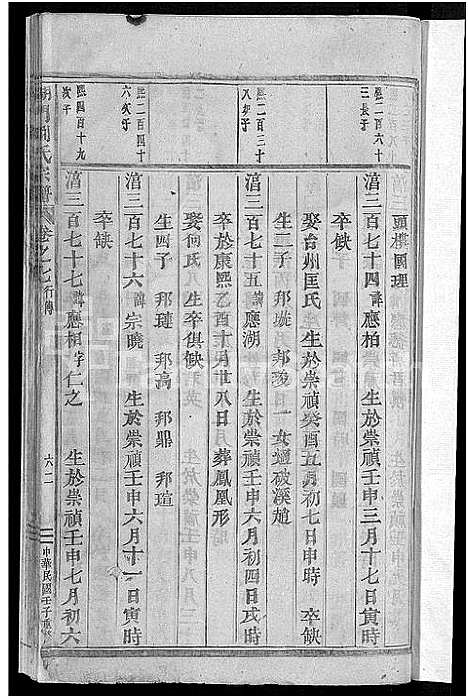 熙二百六十
三長子
熙二百三十
八次子
熙二百四十
六次子
熙四百十九
次子
湻三頭棋國理
湻三百七十四諱應柏 生於崇禎壬申三月十七日寅時
卒缺
娶台州匡氏 生於崇禎癸酉五月初七日申時 卒缺
生二子 邦琁 邦陵 一女適破溪趙
湻三百七十五諱應湖 生於崇禎壬申六月初四日戌時
卒於康熙乙酉十月廿八日 葬鳳凰形
娶何氏 生卒俱缺
生四子 邦璉 邦高 邦鼎 邦瑄
湻三百七十六諱宗曉 生於崇禎壬申六月十一日寅時
卒缺
湻三百七十七諱應桓字仁之 生於崇禎壬申七月初六
周氏宗譜 卷之七 行傳 六二 中華民國壬子重修